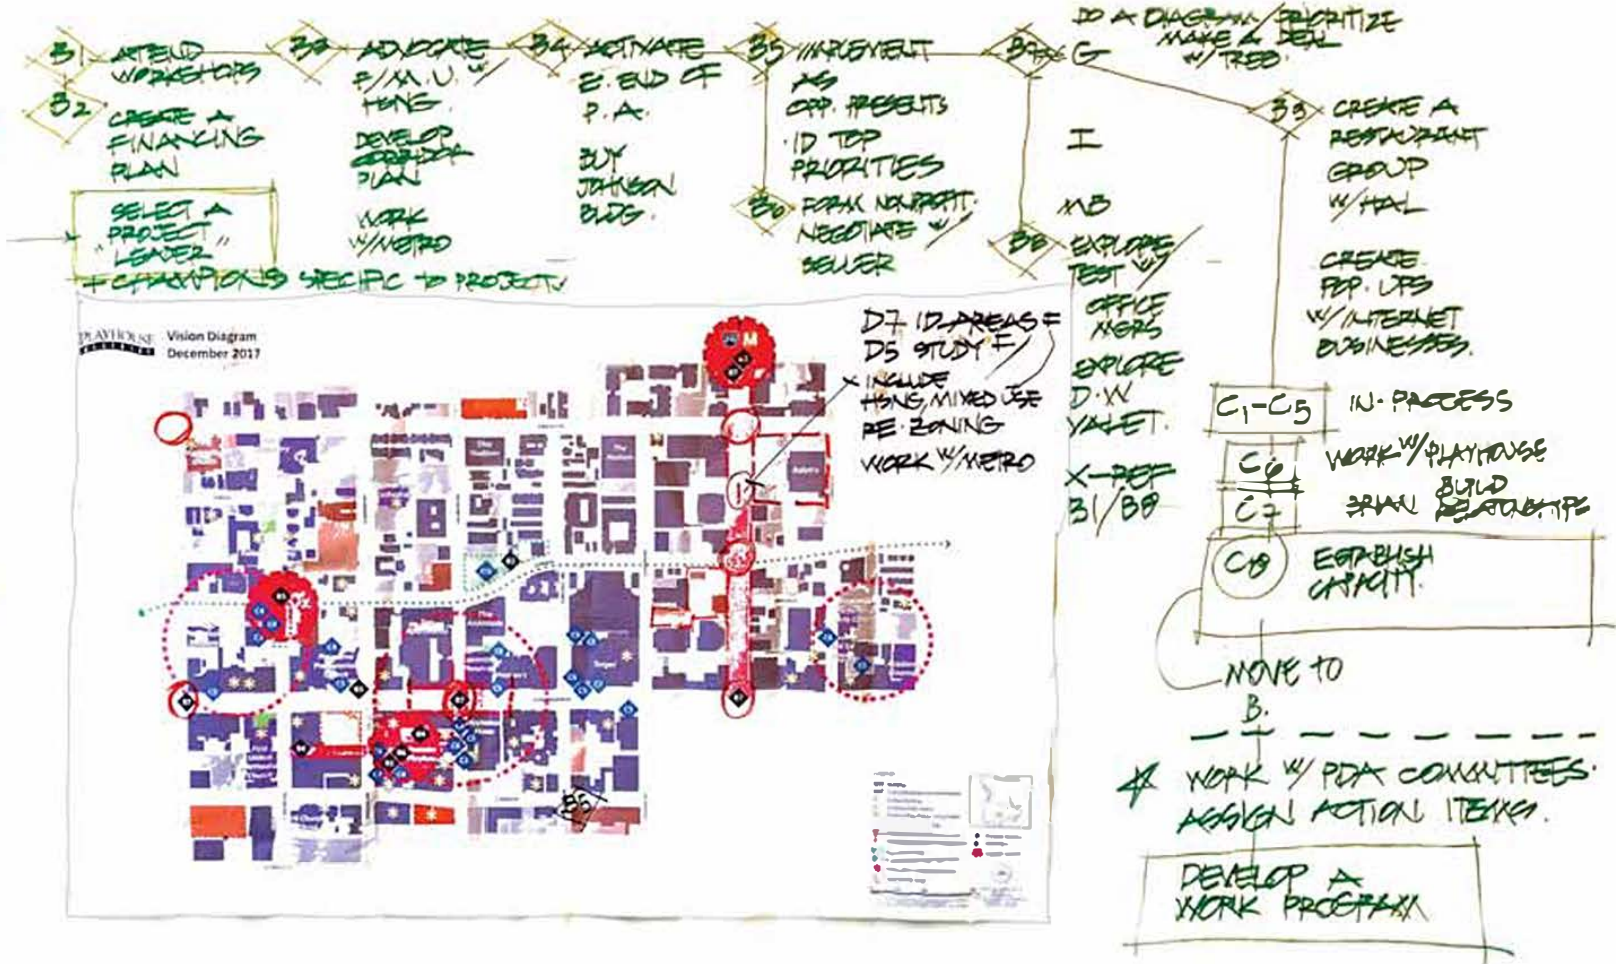 B1 ATTEND
WORKSHOPS
B2 CREATE A
FINANCING
PLAN
SELECT A
PROJECT
"LEADER"
+ CHAMPIONS SPECIFIC TO PROJECTS
B3 ADVOCATE
F/M.U. W/
HSNG.
DEVELOP
CORRIDOR
PLAN
WORK
W/METRO
B4 ACTIVATE
E. END OF
P.A.
BUY
JOHNSON
BLDG.
B5 IMPLEMENT
AS
OPP. PRESENTS
ID TOP
PRIORITIES
B6 FORM NONPROFIT.
NEGOTIATE W/
SELLER
B7
G
I
MB
DO A DIAGRAM/PRIORITIZE
MAKE A DEAL
W/TREB.
B8 EXPLORE/
TEST W/
OFFICE
MGRS
EXPLORE
D.W
VALET.
X-REF
B1/B8
B9 CREATE A
RESTAURANT
GROUP
W/HAL
CREATE
POP-UPS
W/INTERNET
BUSINESSES.
C1-C5 IN-PROCESS
C6 WORK W/PLAYHOUSE
C7 BRIAN BUILD
RELATIONSHIPS
C8 ESTABLISH
CAPACITY.
MOVE TO
B.
WORK W/ PDA COMMITTEES.
ASSIGN ACTION ITEMS.
DEVELOP A
WORK PROGRAM
PLAYHOUSE
DISTRICT
Vision Diagram
December 2017
D7 ID AREAS
D5 STUDY
INCLUDE
HSNG, MIXED USE
RE-ZONING
WORK W/METRO
M
B5